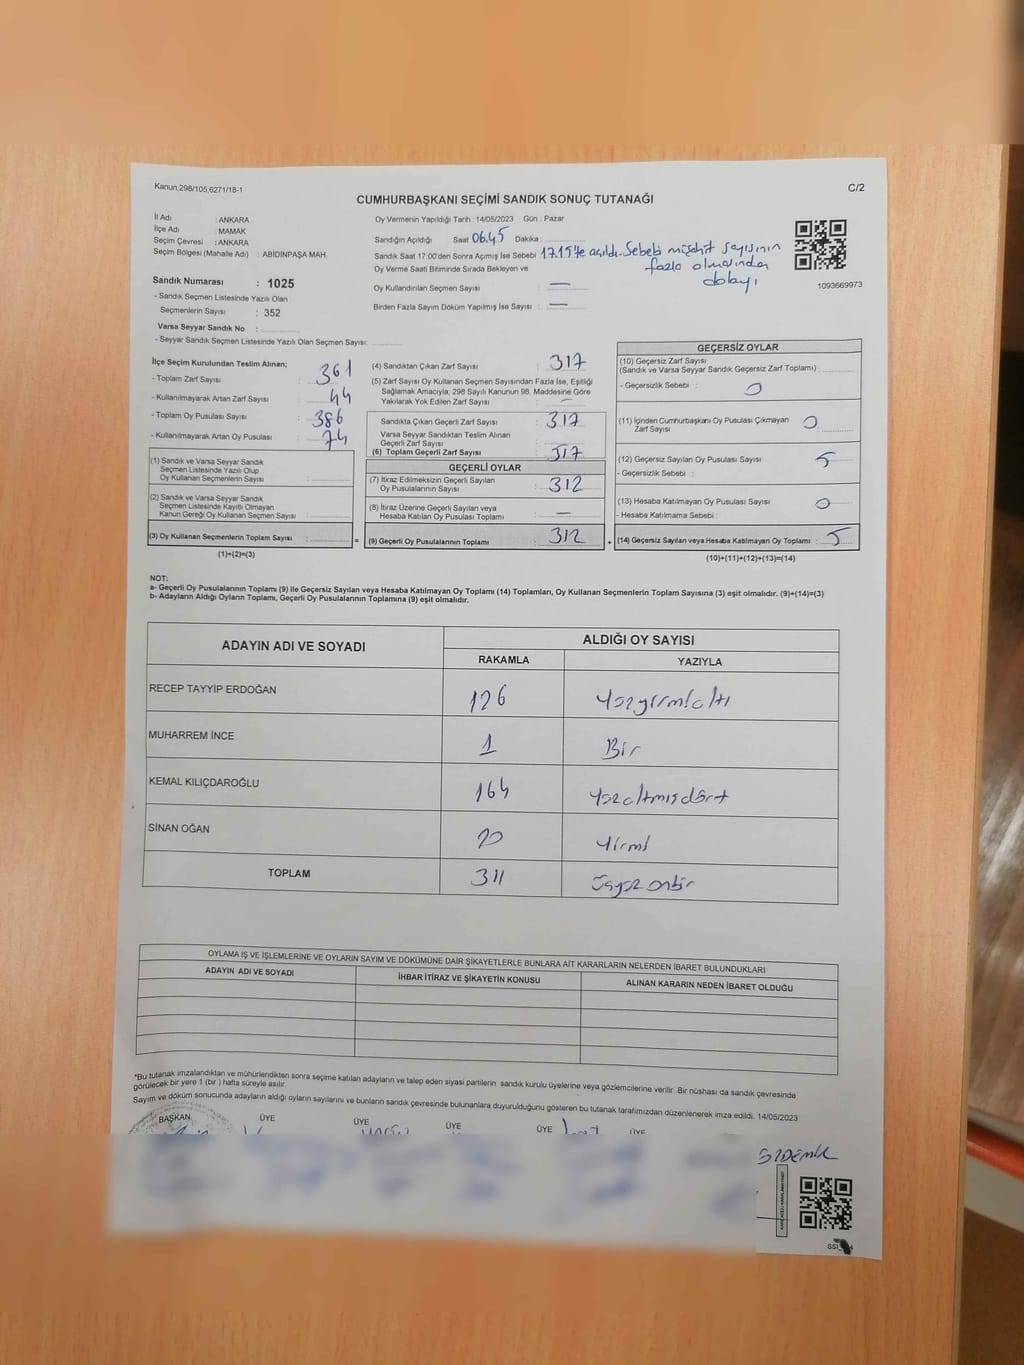 Kanun,298/105,6271/18-1
C/2
CUMHURBAŞKANI SEÇİMİ SANDIK SONUÇ TUTANAĞI
İl Adı : ANKARA
İlçe Adı : MAMAK
Seçim Çevresi : ANKARA
Seçim Bölgesi (Mahalle Adı) : ABIDINPAŞA MAH.
Sandık Numarası : 1025
- Sandık Seçmen Listesinde Yazılı Olan
Seçmenlerin Sayısı : 352
Varsa Seyyar Sandık No :
- Seyyar Sandık Seçmen Listesinde Yazılı Olan Seçmen Sayısı:
Oy Vermenin Yapıldığı Tarih : 14/05/2023 Gün : Pazar
Sandığın Açıldığı Saat 06.45 Dakika :
Sandık Saat 17:00'den Sonra Açımış İse Sebebi 17.15'te açıldı. Sebebi müşahit sayısının
fazla olmasından
dolayı
Oy Verme Saati Bitiminde Sırada Bekleyen ve
Oy Kullandırılan Seçmen Sayısı : —
Birden Fazla Sayım Döküm Yapılmış İse Sayısı : —
1093669973
İlçe Seçim Kurulundan Teslim Alınan;
- Toplam Zarf Sayısı : 361
- Kullanılmayarak Artan Zarf Sayısı : 44
- Toplam Oy Pusulası Sayısı : 386
- Kullanılmayarak Artan Oy Pusulası : 74
(1) Sandık ve Varsa Seyyar Sandık
Seçmen Listesinde Yazılı Olup
Oy Kullanan Seçmenlerin Sayısı :
(2) Sandık ve Varsa Seyyar Sandık
Seçmen Listesinde Kayıtlı Olmayan
Kanun Gereği Oy Kullanan Seçmen Sayısı :
(3) Oy Kullanan Seçmenlerin Toplam Sayısı :
(1)+(2)=(3)
(4) Sandıktan Çıkan Zarf Sayısı : 317
(5) Zarf Sayısı Oy Kullanan Seçmen Sayısından Fazla İse, Eşitliği
Sağlamak Amacıyla; 298 Sayılı Kanunun 98. Maddesine Göre
Yakılarak Yok Edilen Zarf Sayısı : —
Sandıkta Çıkan Geçerli Zarf Sayısı : 317
Varsa Seyyar Sandıktan Teslim Alınan
Geçerli Zarf Sayısı :
(6) Toplam Geçerli Zarf Sayısı : 317
GEÇERLİ OYLAR
(7) İtiraz Edilmeksizin Geçerli Sayılan
Oy Pusulalarının Sayısı : 312
(8) İtiraz Üzerine Geçerli Sayılan veya
Hesaba Katılan Oy Pusulası Toplamı : —
= (9) Geçerli Oy Pusulalarının Toplamı : 312 +
GEÇERSİZ OYLAR
(10) Geçersiz Zarf Sayısı
(Sandık ve Varsa Seyyar Sandık Geçersiz Zarf Toplamı) :
- Geçersizlik Sebebi : 0
(11) İçinden Cumhurbaşkanı Oy Pusulası Çıkmayan
Zarf Sayısı : 0
(12) Geçersiz Sayılan Oy Pusulası Sayısı : 5
- Geçersizlik Sebebi :
(13) Hesaba Katılmayan Oy Pusulası Sayısı : 0
- Hesaba Katılmama Sebebi :
(14) Geçersiz Sayılan veya Hesaba Katılmayan Oy Toplamı : 5
(10)+(11)+(12)+(13)=(14)
NOT:
a- Geçerli Oy Pusulalarının Toplamı (9) ile Geçersiz Sayılan veya Hesaba Katılmayan Oy Toplamı (14) Toplamları, Oy Kullanan Seçmenlerin Toplam Sayısına (3) eşit olmalıdır. (9)+(14)=(3)
b- Adayların Aldığı Oyların Toplamı, Geçerli Oy Pusulalarının Toplamına (9) eşit olmalıdır.
ADAYIN ADI VE SOYADI ALDIĞI OY SAYISI
RAKAMLA YAZIYLA
RECEP TAYYİP ERDOĞAN 126 Yüzyirmialtı
MUHARREM İNCE 1 Bir
KEMAL KILIÇDAROĞLU 164 Yüzaltmışdört
SİNAN OĞAN 20 Yirmi
TOPLAM 311 üçyüz onbir
OYLAMA İŞ VE İŞLEMLERİNE VE OYLARIN SAYIM VE DÖKÜMÜNE DAİR ŞİKAYETLERLE BUNLARA AİT KARARLARIN NELERDEN İBARET BULUNDUKLARI
ADAYIN ADI VE SOYADI İHBAR İTİRAZ VE ŞİKAYETİN KONUSU ALINAN KARARIN NEDEN İBARET OLDUĞU
*Bu tutanak imzalandıktan ve mühürlendikten sonra seçime katılan adayların ve talep eden siyasi partilerin sandık kurulu üyelerine veya gözlemcilerine verilir .Bir nüshası da sandık çevresinde
görülecek bir yere 1 (bir ) hafta süreyle asılır.
Sayım ve döküm sonucunda adayların aldığı oyların sayılarını ve bunların sandık çevresinde bulunanlara duyurulduğunu gösteren bu tutanak tarafımızdan düzenlenerek imza edildi. 14/05/2023
BAŞKAN ÜYE ÜYE ÜYE ÜYE ÜYE